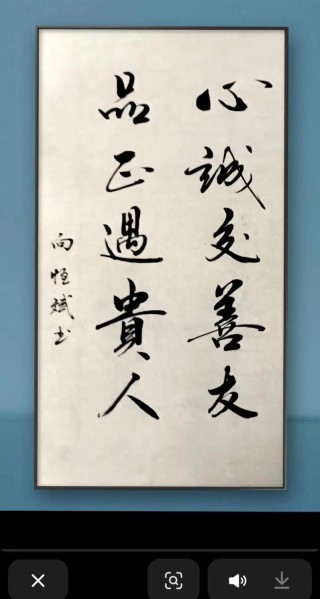 心誠交善友
品正遇貴人
向恒斌书